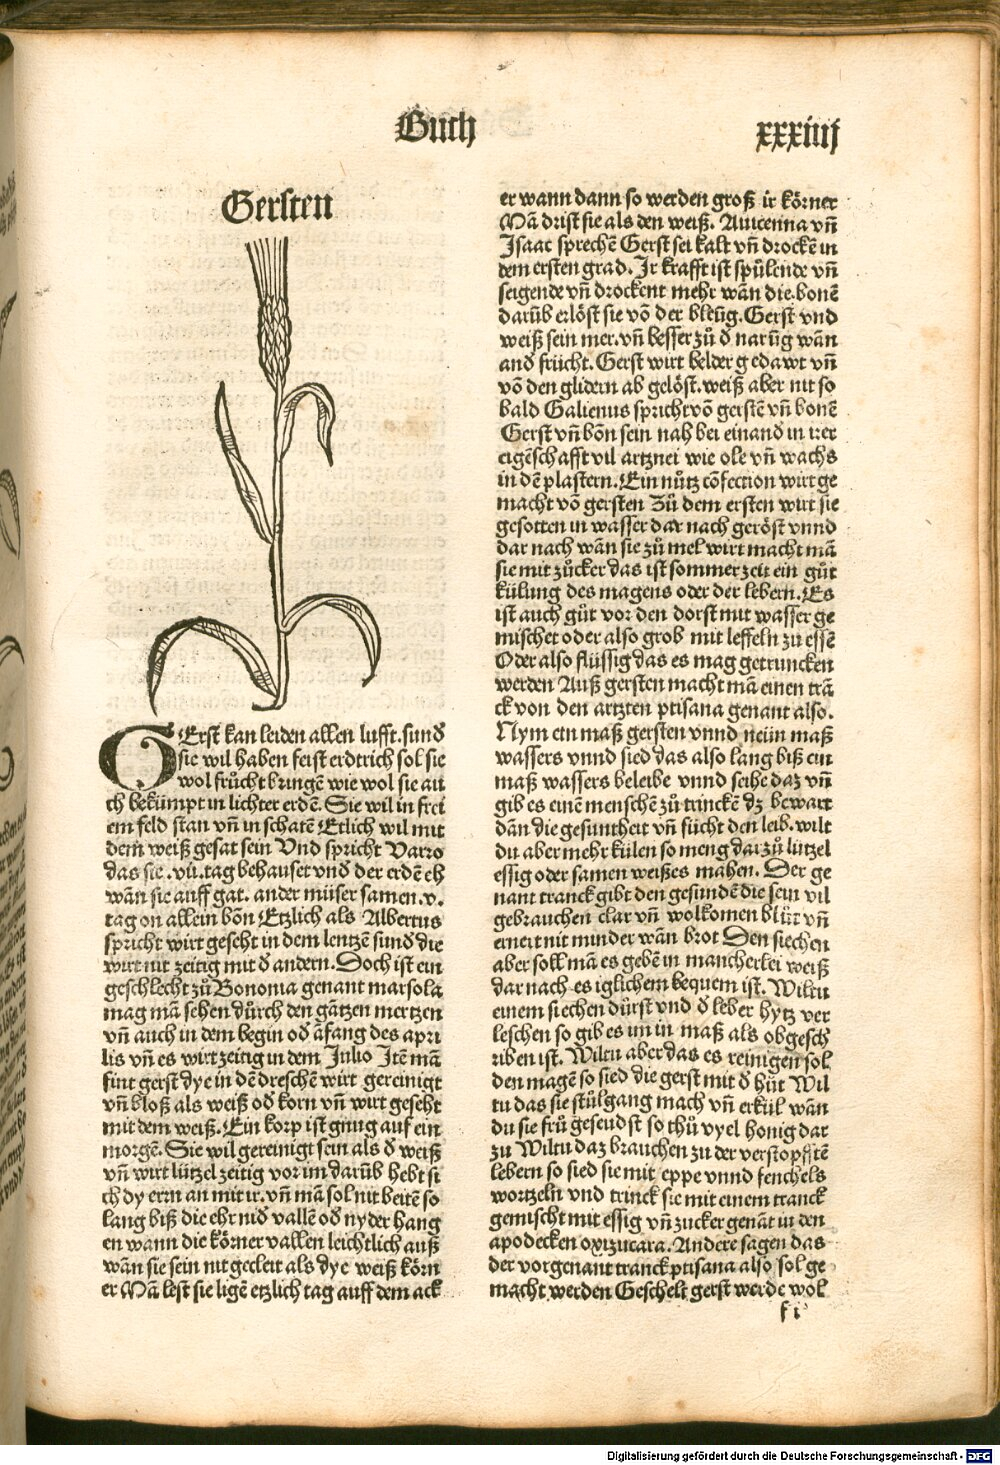 Buch
xxxiiij
Gersten
GErst kan leiden allen lufft. sund̄
sie wil haben feist erdtrich sol sie
wol frücht bringē wie wol sie au
ch bekümpt in lichter erdē. Sie wil in frei
em feld stan vn̄ in schatē Etlich wil mit
dem weiß gesat sein Vnd spricht Varro
das sie .vii. tag behauset vnd̄ der erdē eh
wān sie auff gat. ander müser samen .v.
tag on allein bōn Etzlich als Albertus
spricht wirt geseht in dem lentzē sund̄ die
wirt nit zeitig mit d̄ andern. Doch ist ein
geschlecht zů Bononia genant marsola
mag mā sehen dürch den gātzen mertzen
vn̄ auch in dem begin od̄ āfang des apri
lis vn̄ es wirt zeitig in dem Julio Jtē mā
fint gerst dye in dē dreschē wirt gereinigt
vn̄ bloß als weiß od̄ korn vn̄ wirt geseht
mit dem weiß. Ein korp ist gnug auf ein
morgē. Sie wil gereinigt sein als d̄ weiß
vn̄ wirt lützel zeitig vor im darūb hebt si
ch dy ern an mit ir. vn̄ mā sol nit beitē so
lang biß die ehr nid̄ vallē od̄ nyder hang
en wann die körner vallen leichtlich auß
wān sie sein nit gecleit als dye weiß körn
er Mā lest sie ligē etzlich tag auff dem ack
er wann dann so werden groß ir körner
Mā drist sie als den weiß. Auicenna vn̄
Jsaac sprechē Gerst sei kalt vn̄ drockē in
dem ersten grad. Jr krafft ist spülende vn̄
seigende vn̄ drockent mehr wān die bonē
darūb erlöst sie vō der bleüg. Gerst vnd
weiß sein mer. vn̄ besser zů d̄ narūg wān
and̄ frücht. Gerst wirt belder gedawt vn̄
vō den glidern ab gelöst. weiß aber nit so
bald Galienus spricht vō gerstē vn̄ bonē
Gerst vn̄ bōn sein nah bei einand̄ in irer
eigēschafft vil artznei wie ole vn̄ wachs
in dē plastern. Ein nütz cōfection wirt ge
macht vō gersten Zů dem ersten wirt sie
gesotten in wasser dar nach geröst vnnd
dar nach wān sie zů mel wirt macht mā
sie mit zůcker das ist sommer zeit ein gůt
külung des magens oder der lebern. Es
ist auch gůt vor den dorst mit wasser ge
mischet oder also grob mit leffeln zu essē
Oder also flüssig das es mag getruncken
werden Auß gersten macht mā einen trā
ck von den artzten ptisana genant also.
Nym ein maß gersten vnnd neün maß
wassers vnnd sied das also lang biß ein
maß wassers beleibe vnnd seihe daz vn̄
gib es einē menschē zů trinckē dz bewart
dān die gesuntheit vn̄ fücht den leib. wilt
du aber mehr külen so meng dar zů lützel
essig oder samen weißes mahen. Der ge
nant tranck gibt den gesundē die sein vil
gebrauchen clar vn̄ wolkomen blüt vn̄
ernert nit minder wān brot Den siechen
aber soll mā es gebē in mancherlei weiß
dar nach es iglichem bequem ist. Wiltu
einem siechen dürst vnd d̄ leber hytz ver
leschen so gib es im in maß als obgesch
riben ist. Wiltu aber das es reinigen sol
den magē so sied die gerst mit d̄ hüt Wil
tu das sie stülgang mach vn̄ erkül wān
du sie frü geseudst so thů vyel honig dar
zu Wiltu daz brauchen zu der verstopftē
lebern so sied sie mit eppe vnnd fenchels
wortzeln vnd trinck sie mit einem tranck
gemischt mit essig vn̄ zucker genāt in den
apodecken oxizucara. Andere sagen das
der vorgenant tranck ptisana also sol ge
macht werden Geschelt gerst werde wol
f i
Digitalisierung gefördert durch die Deutsche Forschungsgemeinschaft - DFG